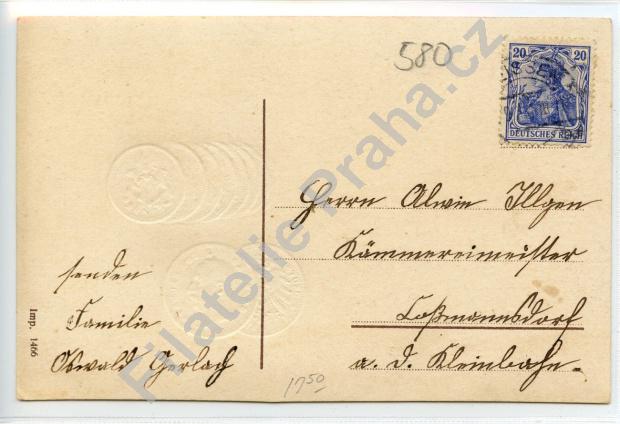 580
20 20
DEUTSCHES REICH
Herrn Alwin Illgen
Kämmereimeister
Coßmannsdorf
a. d. Kleinbahn.
senden
Familie
Oswald Gerlach
Imp. 1466
1750
Filatelie Praha.cz